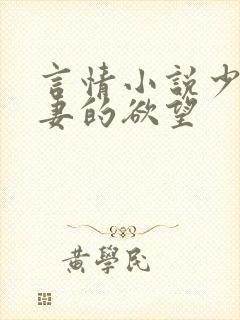 言情小説少
妻的欲望
黃學民